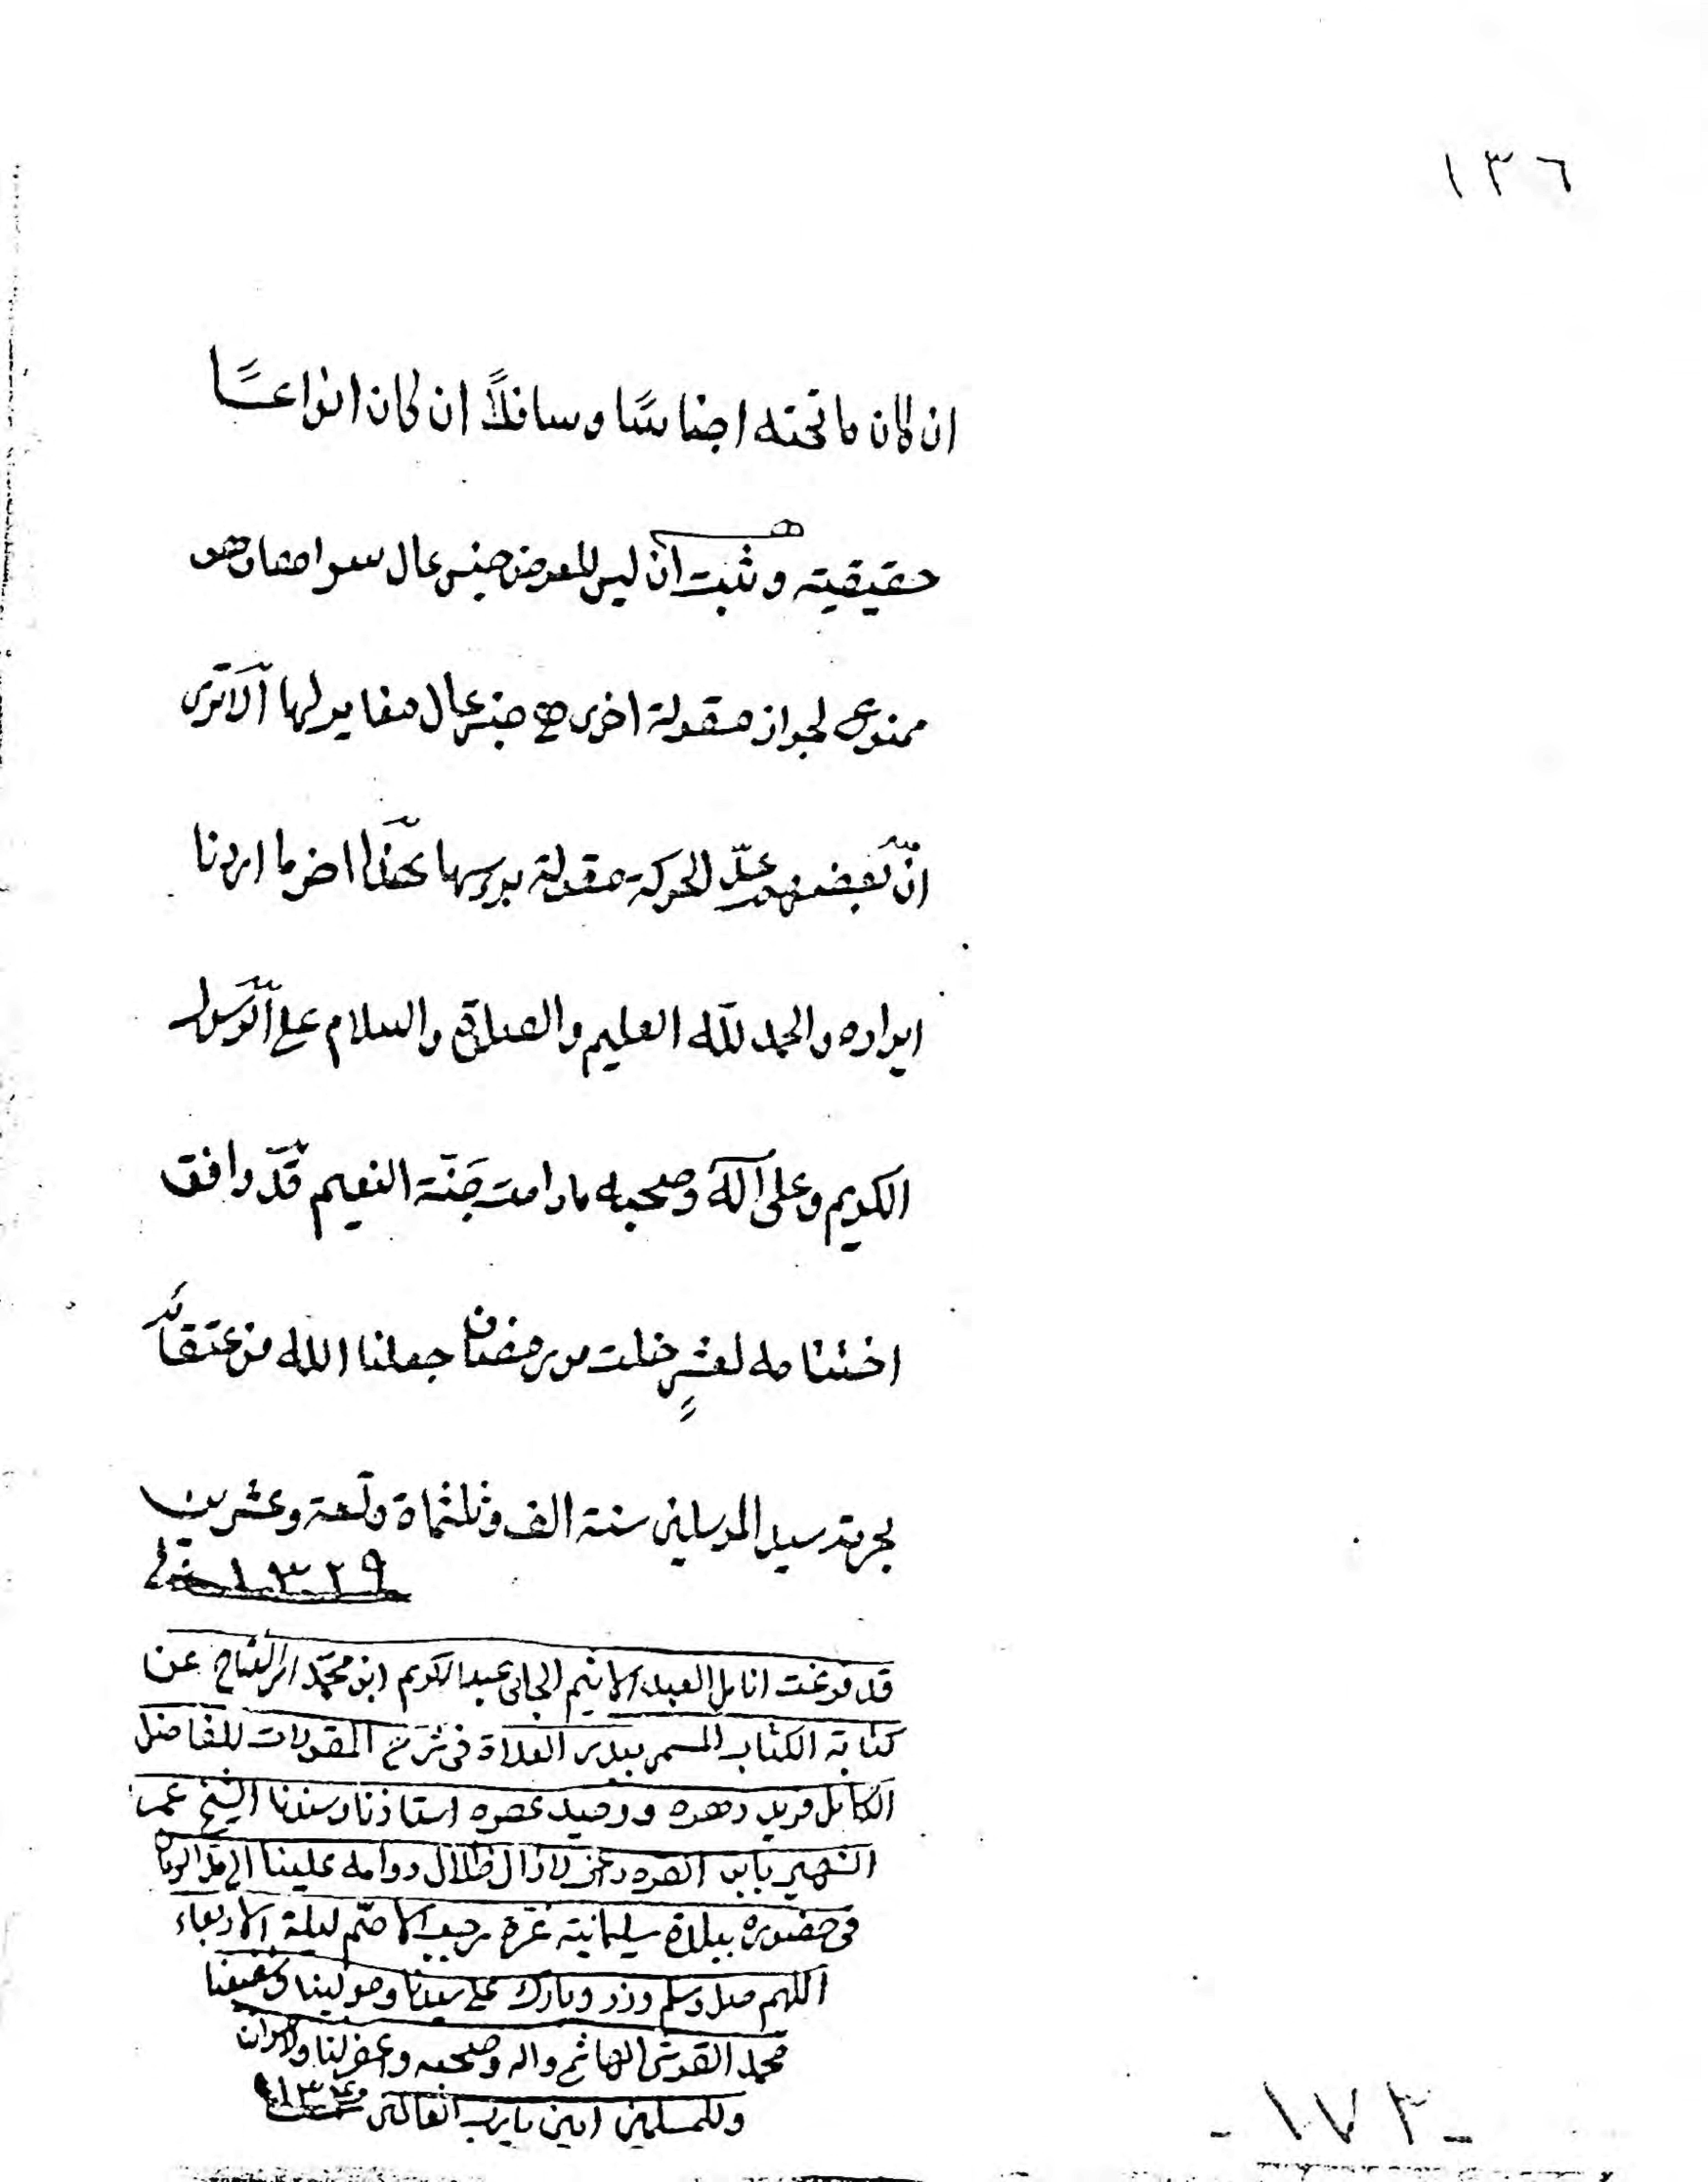 ١٣٦
ان كان ما تحته اجناسًا وسافلًا ان كان انواعًا
حقيقية وثبت ان ليس للعرض جنس عال سواهما هو
ممنوع لجواز مقولة اخرى هى جنس عال مغاير لها ألا ترى
انّ بعضهم عدّ الحركة مقولة برسها هذا اخر ما اردنا
ايراده والحمد للّه العليم والصلاة والسلام على الرّسول
الكريم وعلى آله وصحبه ما دامت جنّة النعيم قد وافق
اختتامه لعشرٍ خلت من رمضان جعلنا الله من عتقائه
بحرمة سيد المرسلين سنة الف وثلثماة وتسعة وعشرين
١٣٢٩
قد فرغت انا العبد الاثيم الجانى عبد الكريم ابن محمّد عن
كتابة الكتاب المسمى ببدر العلاة فى شرح المقولات للفاضل
الكامل فريد دهره ووحيد عصره استاذنا وسندنا الشيخ عمر
الشهير بابن القره داغى لا زال ظلال دوامه علينا الى
فى حضوره ببلدة سليمانية غرة رجب الاصّم ليلة الاربعاء
اللهم صل وسلم وزد وبارك على سيدنا ومولينا وشفيعنا
محمد القرشى الهاشمى واله وصحبه واغفر لنا ولاخواننا
وللمسلمين امين يا رب العالمين
- ١٧٣ -